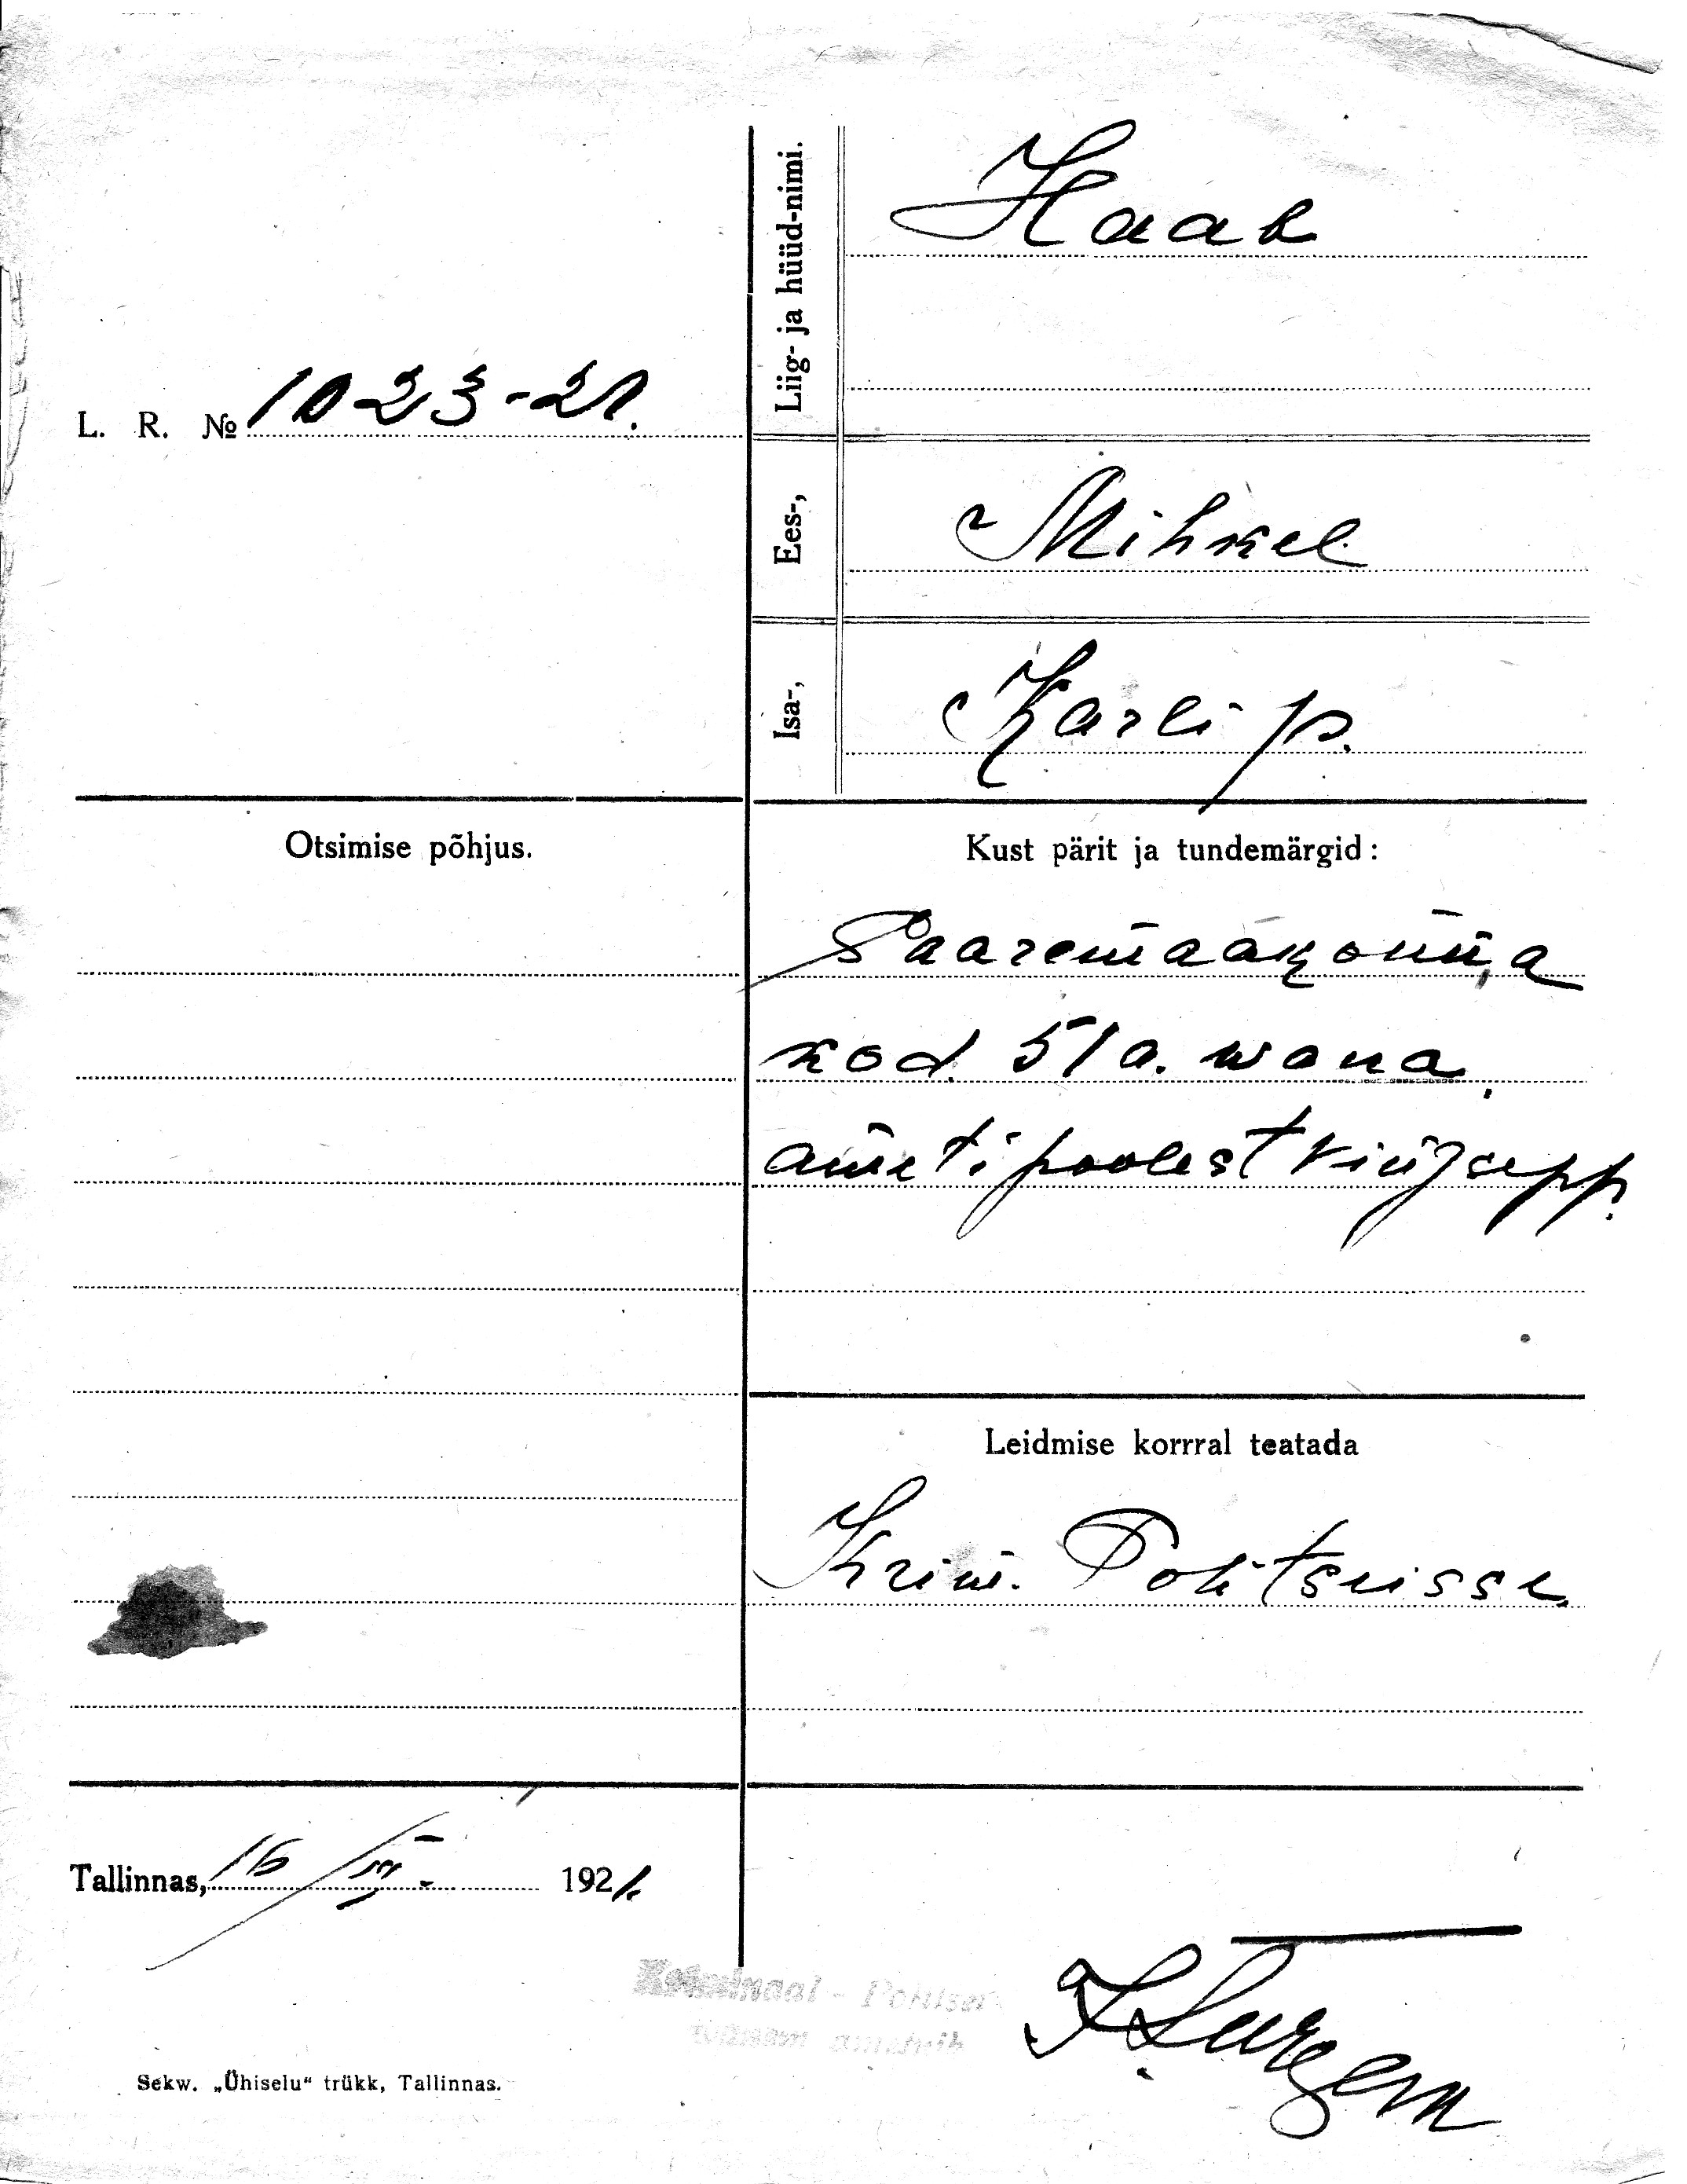 Liig- ja hüüd-nimi.
Haab
L. R. № 1023-21.
Ees-,
Mihkel
Isa-,
Karli p.
Otsimise põhjus.
Kust pärit ja tundemärgid:
Saaremaakonna
kod. 51 a. wana,
ameti poolest kingsepp.
Leidmise korrral teatada
Krim. Politseisse.
Tallinnas, 16/III. 1921.
Kriminaal-Politsei
Sekw. „Ühiselu“ trükk, Tallinnas.